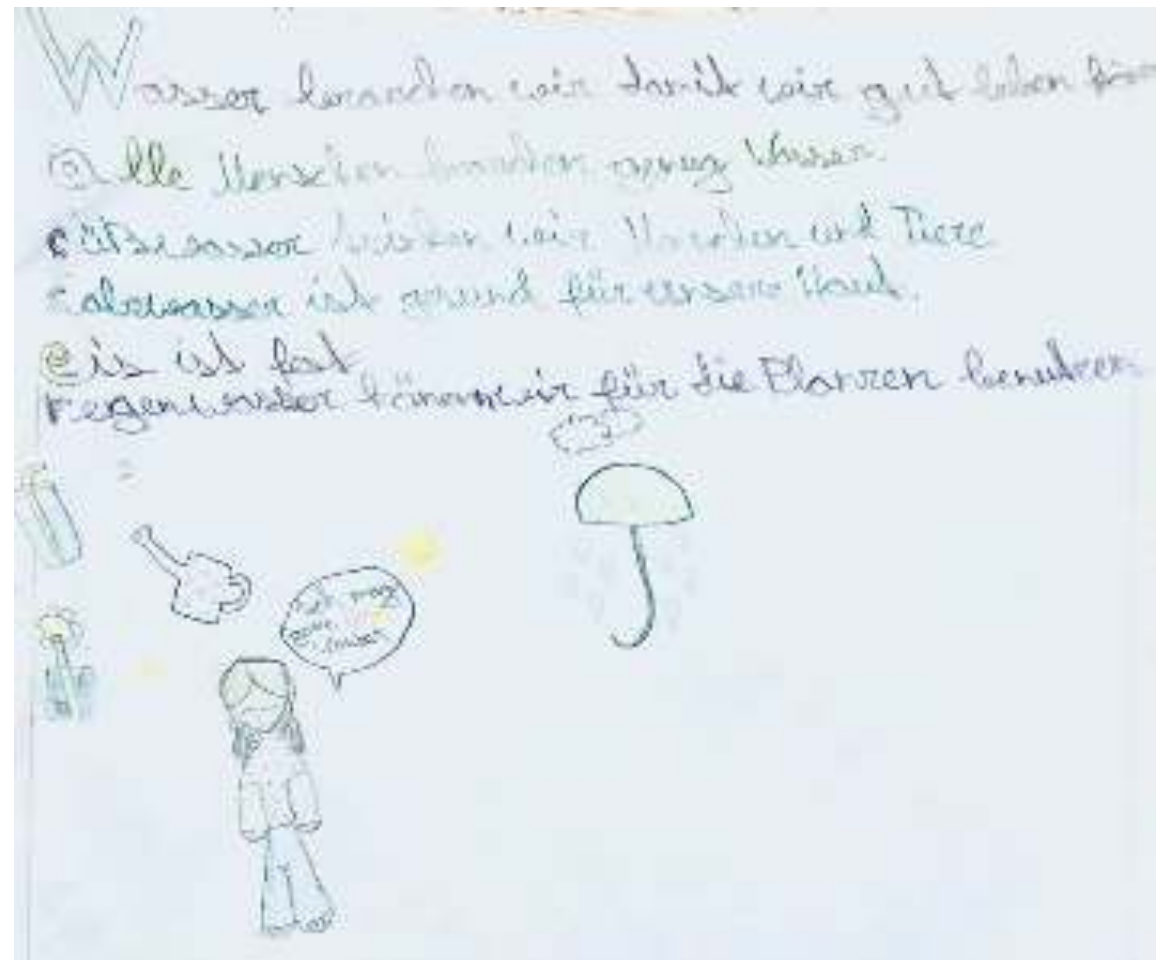 Wasser brauchen wir damit wir gut leben
Alle Menschen brauchen genug Wasser.
süßwasser trinken wir Menschen und Tiere
salzwasser ist gesund für unsere Haut.
eis ist fest
regenwasser können wir für die Pflanzen benutzen
mag